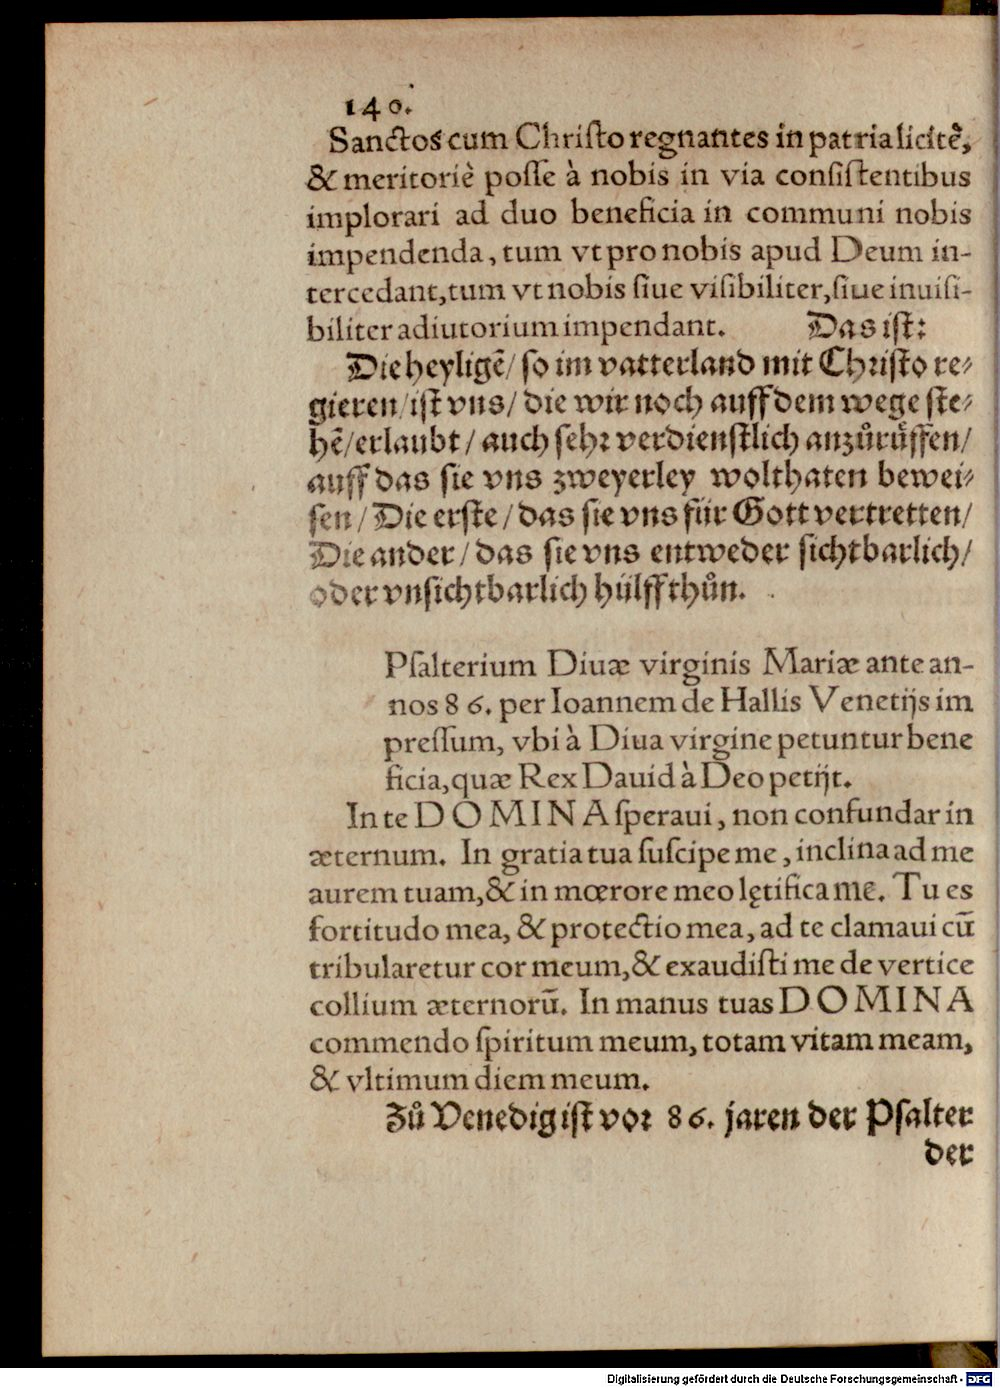 140.
Sanctos cum Christo regnantes in patria licitè,
& meritoriè posse à nobis in via consistentibus
implorari ad duo beneficia in communi nobis
impendenda, tum vt pro nobis apud Deum in-
tercedant, tum vt nobis siue visibiliter, siue inuisi-
biliter adiutorium impendant. Das ist:
Die heyligẽ/ so im vatterland mit Christo re-
gieren/ ist vns/ die wir noch auff dem wege ste-
hẽ/ erlaubt/ auch sehr verdienstlich anzůrůffen/
auff das sie vns zweyerley wolthaten bewei-
sen/ Die erste/ das sie vns für Gott vertretten/
Die ander/ das sie vns entweder sichtbarlich/
oder vnsichtbarlich hülff thůn.
Psalterium Diuæ virginis Mariæ ante an-
nos 86. per Ioannem de Hallis Venetijs im
pressum, vbi à Diua virgine petuntur bene
ficia, quæ Rex Dauid à Deo petijt.
In te DOMINA speraui, non confundar in
æternum. In gratia tua suscipe me, inclina ad me
aurem tuam, & in mœrore meo lętifica me. Tu es
fortitudo mea, & protectio mea, ad te clamaui cũ
tribularetur cor meum, & exaudisti me de vertice
collium æternorũ. In manus tuas DOMINA
commendo spiritum meum, totam vitam meam,
& vltimum diem meum.
Zů Venedig ist vor 86. jaren der Psalter
der
Digitalisierung gefördert durch die Deutsche Forschungsgemeinschaft - DFG